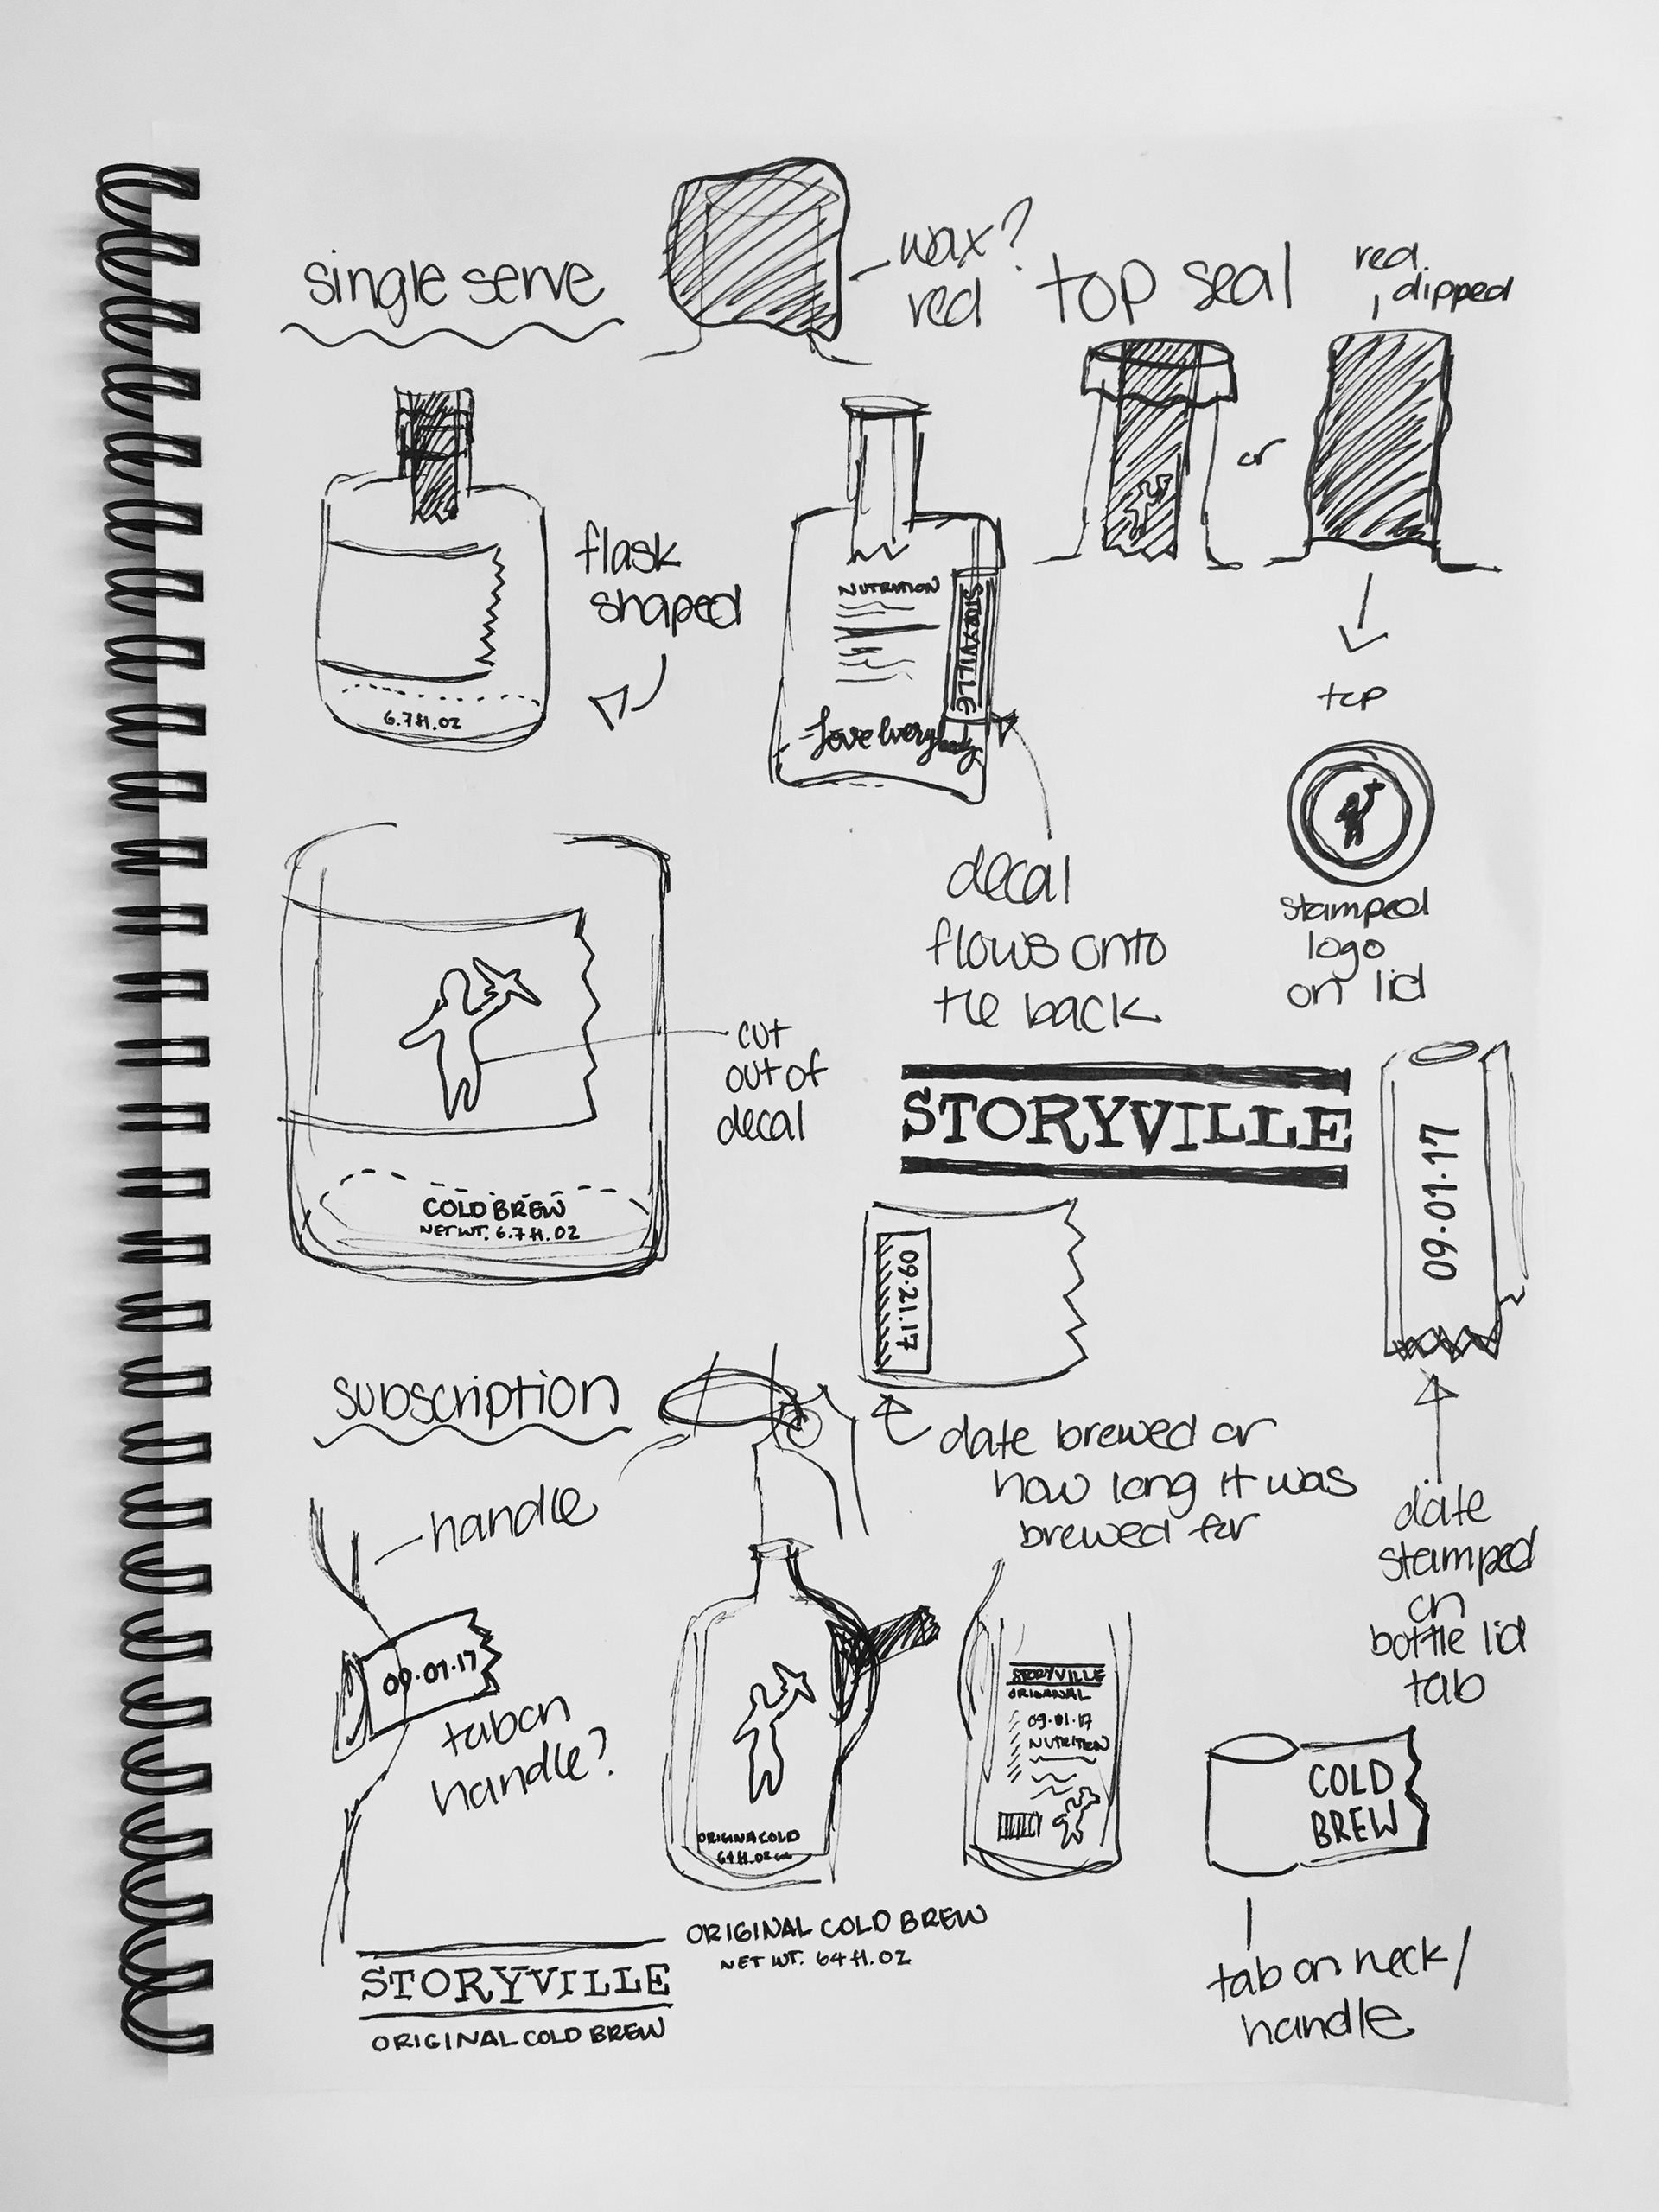 single serve
wax?
red
top seal
red
dipped
or
flask
shaped
6.7 fl. oz
NUTRITION
STORYVILLE
Love Everybody
top
stamped
logo
on lid
decal
flows onto
the back
cut
out of
decal
COLD BREW
NET WT. 6.7 fl. OZ
STORYVILLE
09.01.17
09.21.17
date brewed or
how long it was
brewed for
date
stamped
on
bottle lid
tab
subscription
handle
09.01.17
tab on
handle?
ORIGINAL COLD
64 fl. oz
STORYVILLE
ORIGINAL
09.01.17
NUTRITION
COLD
BREW
tab on neck/
handle
ORIGINAL COLD BREW
NET WT. 64 fl. OZ
STORYVILLE
ORIGINAL COLD BREW